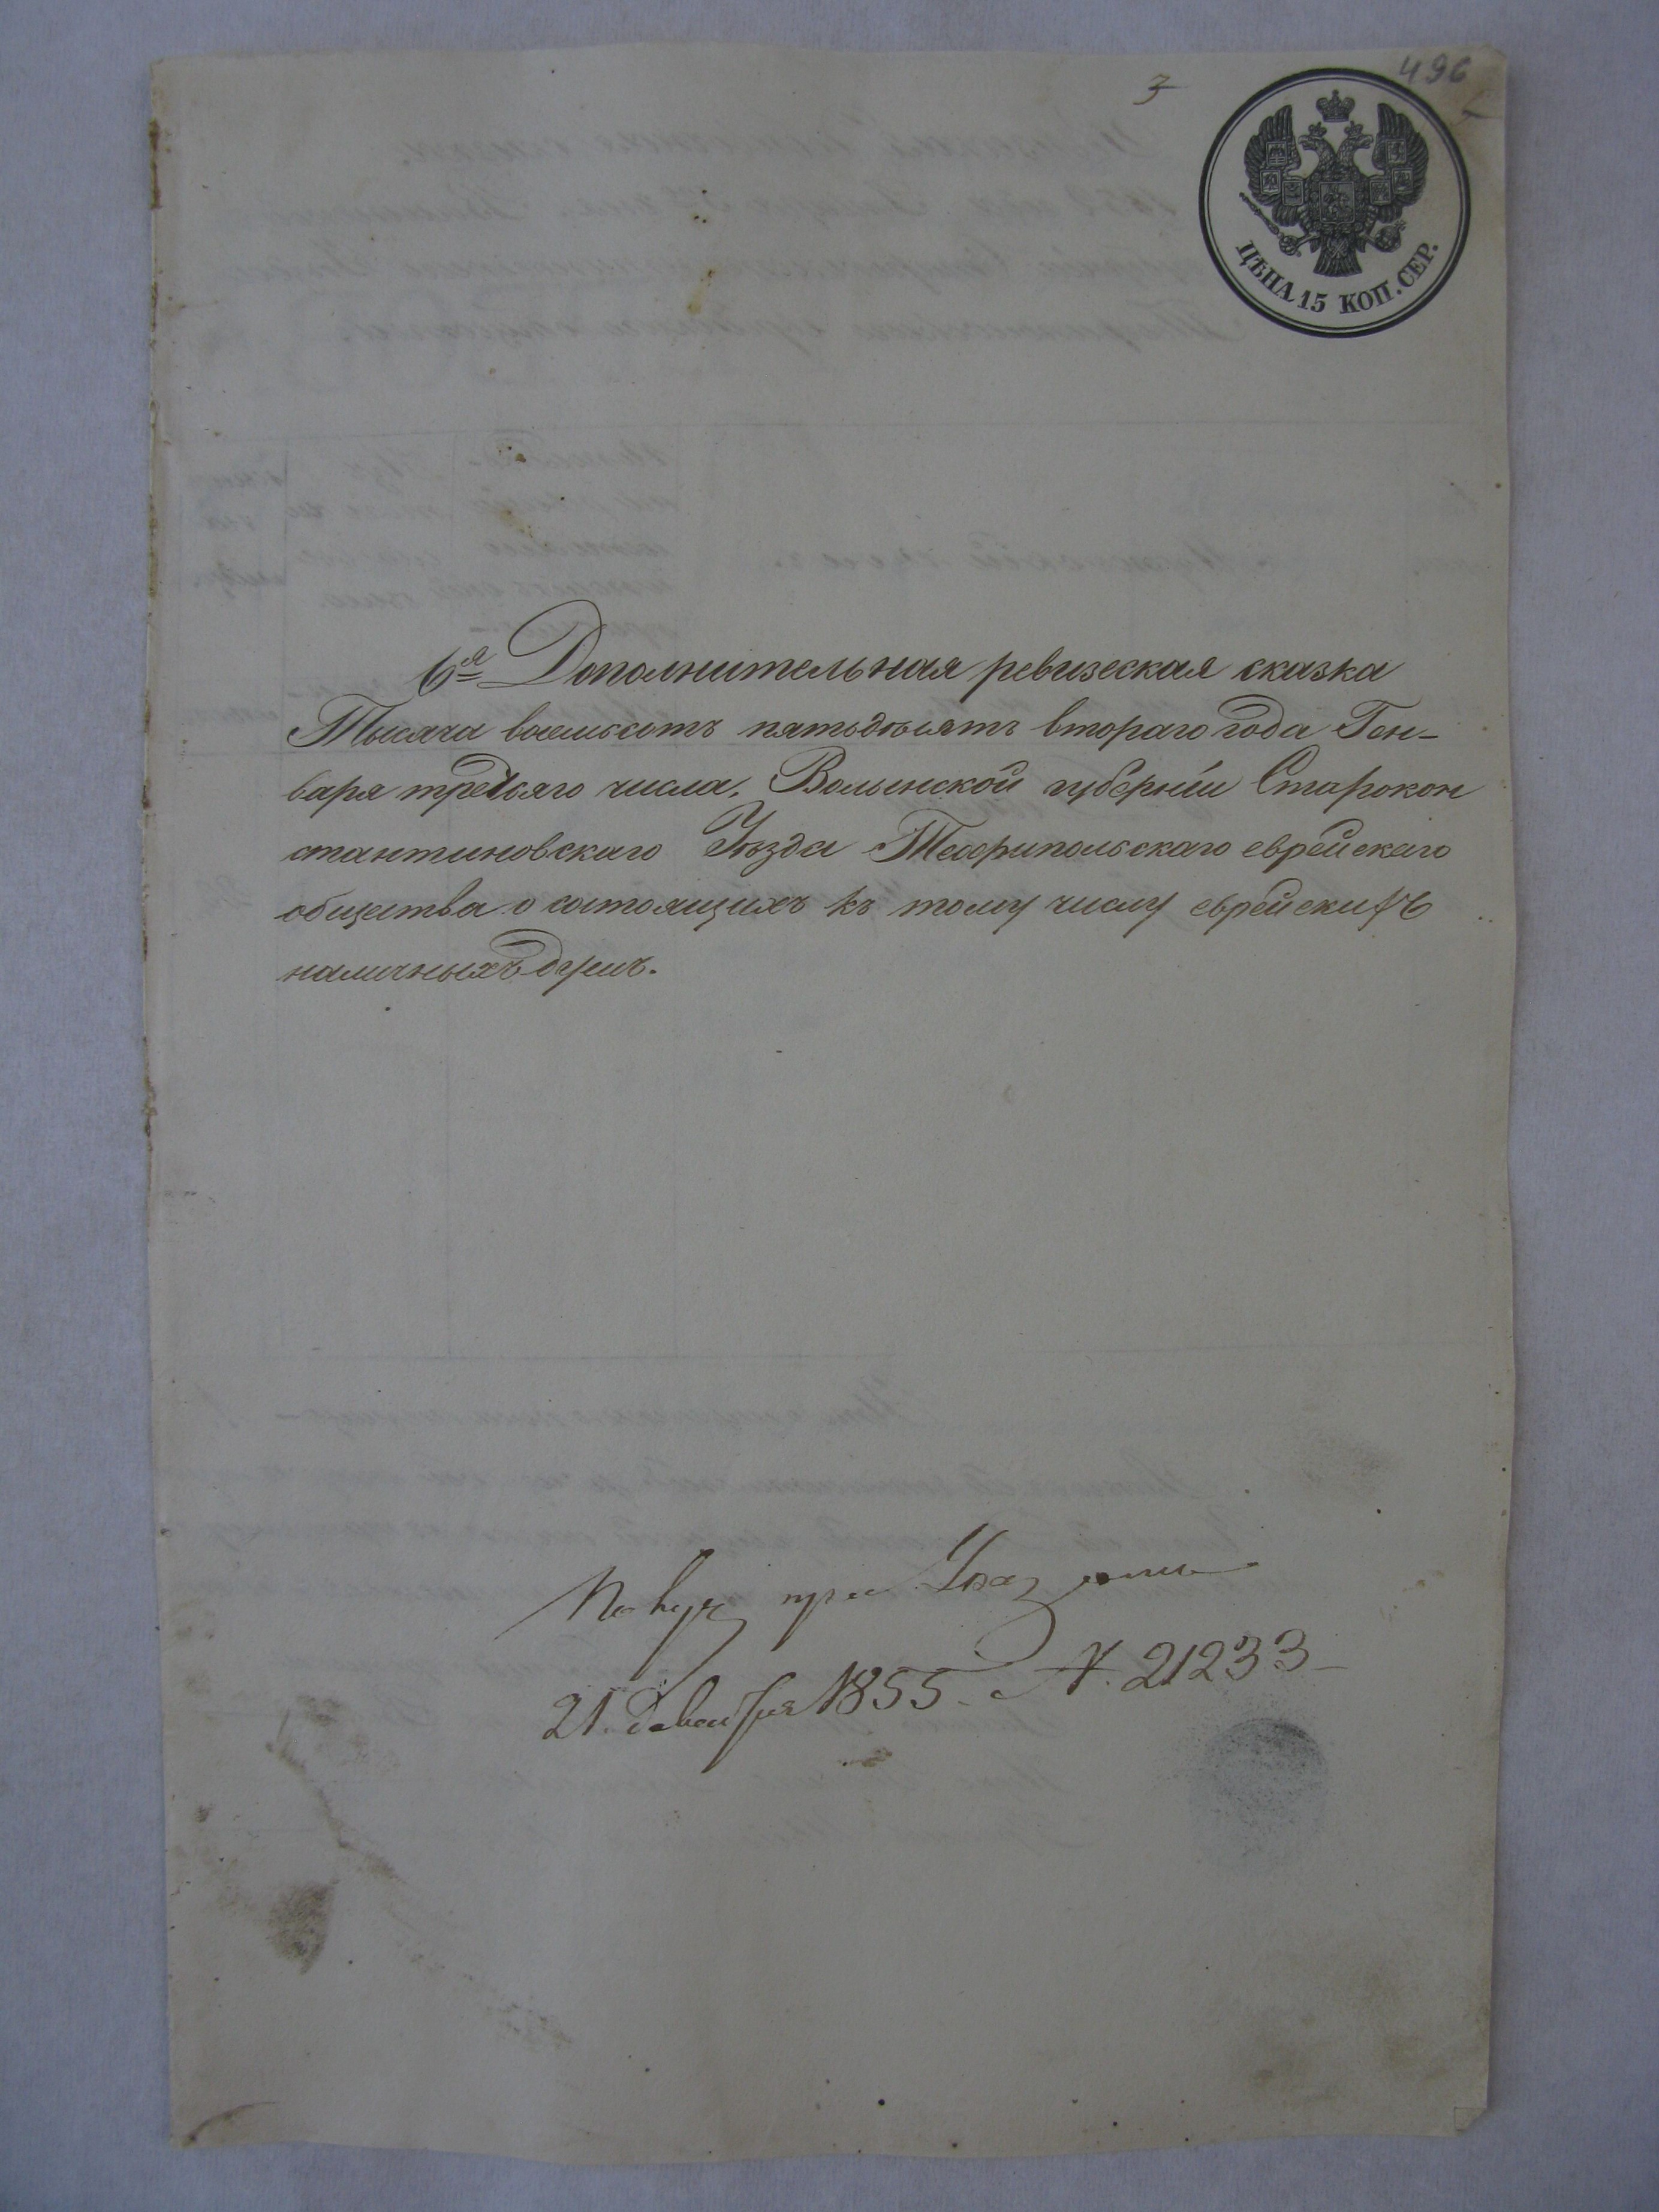 3
496
ЦѢНА 15 КОП. СЕР.
6я Дополнительная ревизская сказка
Тысяча восемьсотъ пятьдесятъ втораго года Ген-
варя третьяго числа. Волынской губерніи Старокон
стантиновскаго Уѣзда Теофипольскаго еврейскаго
общества о состоящихъ къ тому числу еврейскихъ
наличныхъ душъ.
при Указѣ
21. Декабря 1855. N. 21233